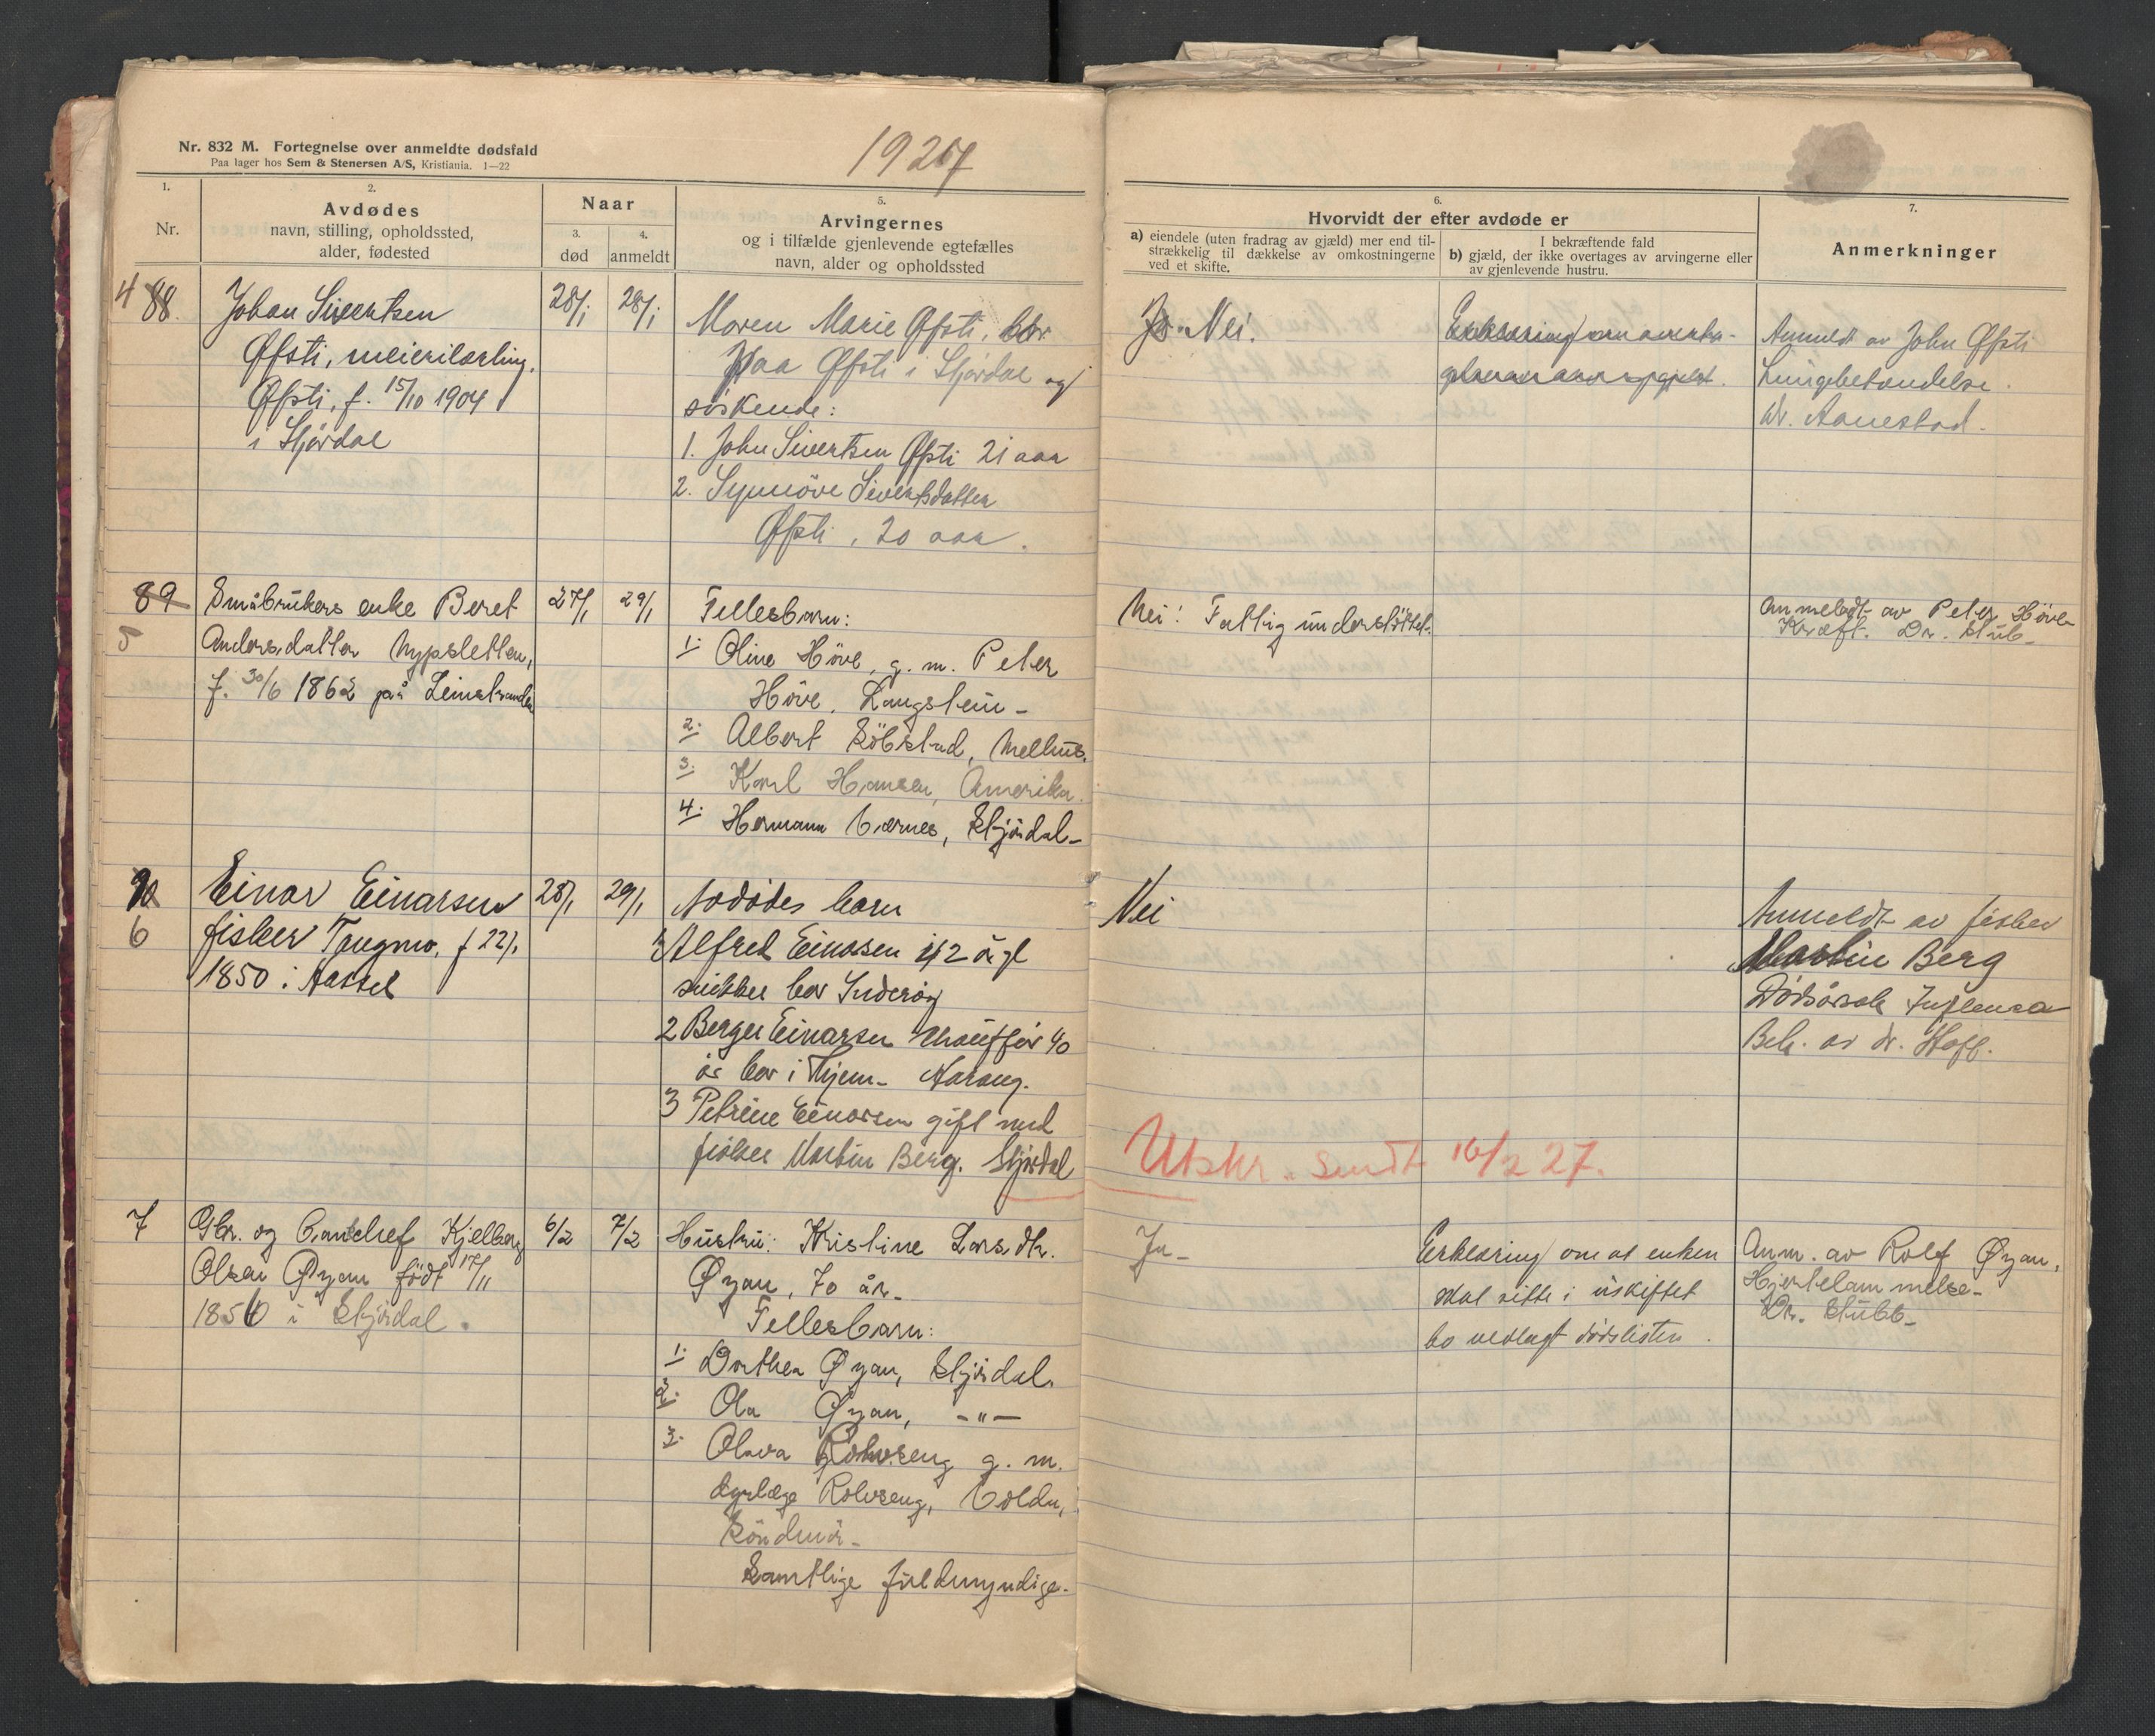 Nr. 832 M. Fortegnelse over anmeldte dødsfald
Paa lager hos Sem & Stenersen A/S, Kristiania. 1—22
1927
1.
Nr.
2.
Avdødes
navn, stilling, opholdssted,
alder, fødested
Naar
3.
død
4.
anmeldt
5.
Arvingernes
og i tilfælde gjenlevende egtefælles
navn, alder og opholdssted
6.
Hvorvidt der efter avdøde er
a) eiendele (uten fradrag av gjæld) mer end til-
strækkelig til dækkelse av omkostningerne
ved et skifte.
I bekræftende fald
b) gjæld, der ikke overtages av arvingerne eller
av gjenlevende hustru.
7.
Anmerkninger
4 88.
Johan Sivertsen
Øfsti, meierilærling,
Øfsti, f. 15/10 1904
i Stjørdal
28/1
28/1
Maren Marie Øfsti, bor
paa Øfsti i Stjørdal og
søskende:
1. John Sivertsen Øfsti 21 aar
2. Synnöve Sivertsdatter
Øfsti, 20 aar.
Ja. Nei.
Erklæring om
Anmeldt av John Øfsti
Lungebetændelse.
Dr. Aanestad.
89
5
Småbrukers enke Beret
Andersdatter Nypsletten,
f. 30/6 1862 på Leinstranden
27/1
29/1
Fellesbarn:
1. Oline Höve, g. m. Peter
Höve, Langstein -
2. Albert Söbstad, Melhus.
3. Karl Hansen, Amerika.
4. Hermann Værnes, Stjördal -
Nei! Fattig understöttet.
Anmeldt av Peter Höve
Kræft. Dr. Stub -
90
6
Einar Einarsen
fisker Tangmo, f 22/1
1850 i Hassel
28/1
29/1
Avdødes barn
1 Alfred Einarsen 42 år gl
snikker bor Inderøy
2 Berger Einarsen chauffør 40
år bor i
3 Petrine Einarsen gift med
fisker Martin Berg. Stjørdal
Nei
Anmeldt av fisker
Martin Berg
Dødsårsak Influensa
Beh. av dr. Hoff.
Utskr. sendt 16/2 27.
7
Gbr. og Kjelberg
Olsen Øyan födt 17/11
1856 i Stjördal.
6/2
7/2
Hustru: Kristine Larsdtr.
Øyan, 70 år -
Fellesbarn:
1. Dorthea Øyan, Stjördal.
2. Ola Øyan, -"-
3. Olava Rolvseng g. m.
dyrlæge Rolvseng, Volda,
Söndmör -
Samtlige fuldmyndige.
Ja -
Erklæring om at enken
skal sitte i uskiftet
bo vedlagt dødslisten.
Anm. av Rolf Øyan,
Hjertelammelse -
Dr. Stubb -